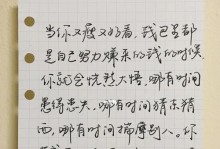 当你又瘦又好看，钱包里都
是自己努力赚来的钱的时候.
你就会恍然大悟,哪有时间
患得患失，哪有时间猜东猜
西，哪有时间揣摩别人。你